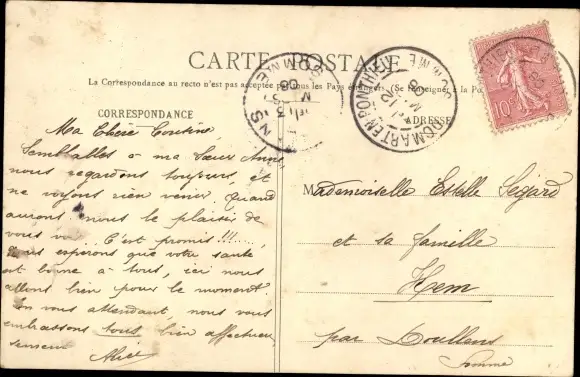 CARTE POSTALE
La Correspondance au recto n'est pas acceptée par tous les Pays étrangers (Se renseigner à la Po
CORRESPONDANCE
ADRESSE
Ma Chère Cousine
Semblables à ma Sœur Anne
nous regardons toujours, et
ne voyons rien venir. Quand
aurons-nous le plaisir de
vous C'est promis!!!....,
Nous esperons que votre santé
est bonne à tous, ici nous
allons bien pour le moment
En vous attendant, nous vous
embrassons tous bien affectueu
sement
Alice
Mademoiselle Estelle Ségard
et sa famille
Hem
par Doullens
Somme
10c